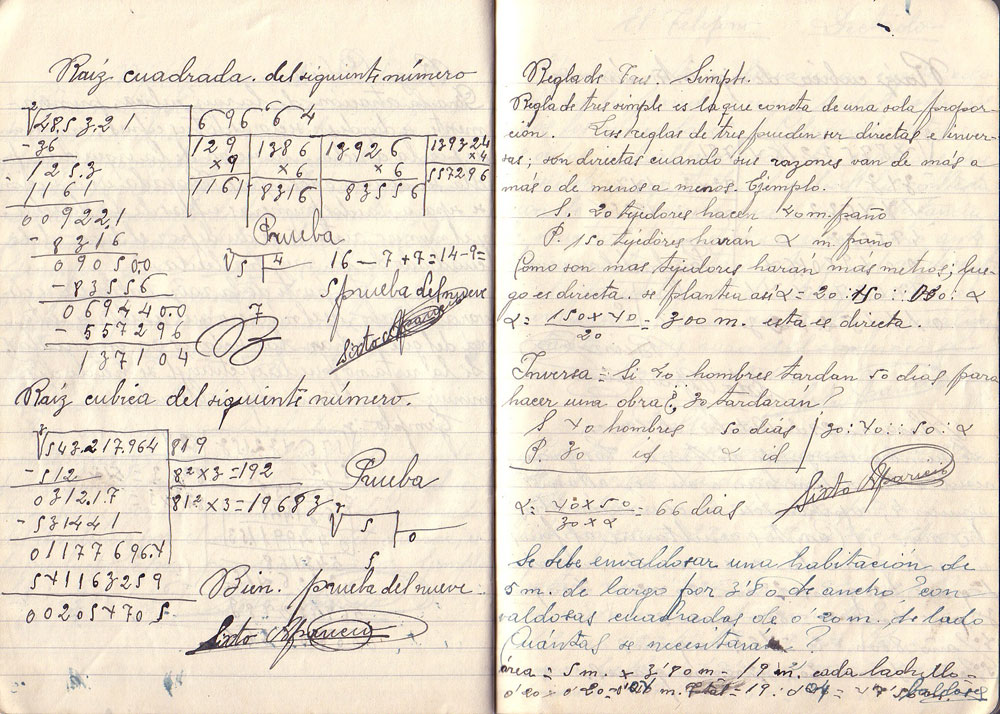 Raiz cuadrada. del siguiente número
√48.53.21 69664
-36 129 1386 13926 139324
125.3 x9 x6 x6 x4
1161 1161 8316 83556 557296
009221
-8316 Prueba
090500 √5 4 16-7+7=14-9=
-83556 5 prueba del nueve
069440.0 7
-557296 Sixto Aparicio
137104
Raiz cubica del siguiente número.
√543.217.964 819
-512 8²x3=192
0312.17 81²x3=19683 Prueba
-531441 √5 0
01177696.4
541163259 5
00205470 5 Bien. prueba del nueve
Sixto Aparicio
Regla de Tres. Simple.
Regla de tres simple es la que consta de una sola propor-
ción. Las reglas de tres pueden ser directas e inver-
sas; son directas cuando sus razones van de más a
más o de menos a menos. Ejemplo.
S. 20 tejidores hacen 40 m. paño
P. 150 tejidores harán α m. paño
Como son mas tejidores harán más metros; lue-
go es directa. se plantea así α = 20 : 150 :: : α
α = 150 x 40 / 20 = 300 m. esta es directa.
Inversa = Si 40 hombres tardan 50 dias para
hacer una obra ¿ 30 tardaran?
S 40 hombres 50 dias 30 : 40 :: 50 : α
P. 30 id α id
Sixto Aparicio
α = 40 x 50 / 30 x α = 66 dias
Se debe envaldosar una habitación de
5 m. de largo por 3'80 de ancho con
valdosas cuadrados de 0'20 m. de lado
Cuántas se necesitarán?
área = 5 m. x 3'80 m = 19 m². cada ladrillo =
0'20 0'20 = 0'04 m. = 19 : 0'04 =